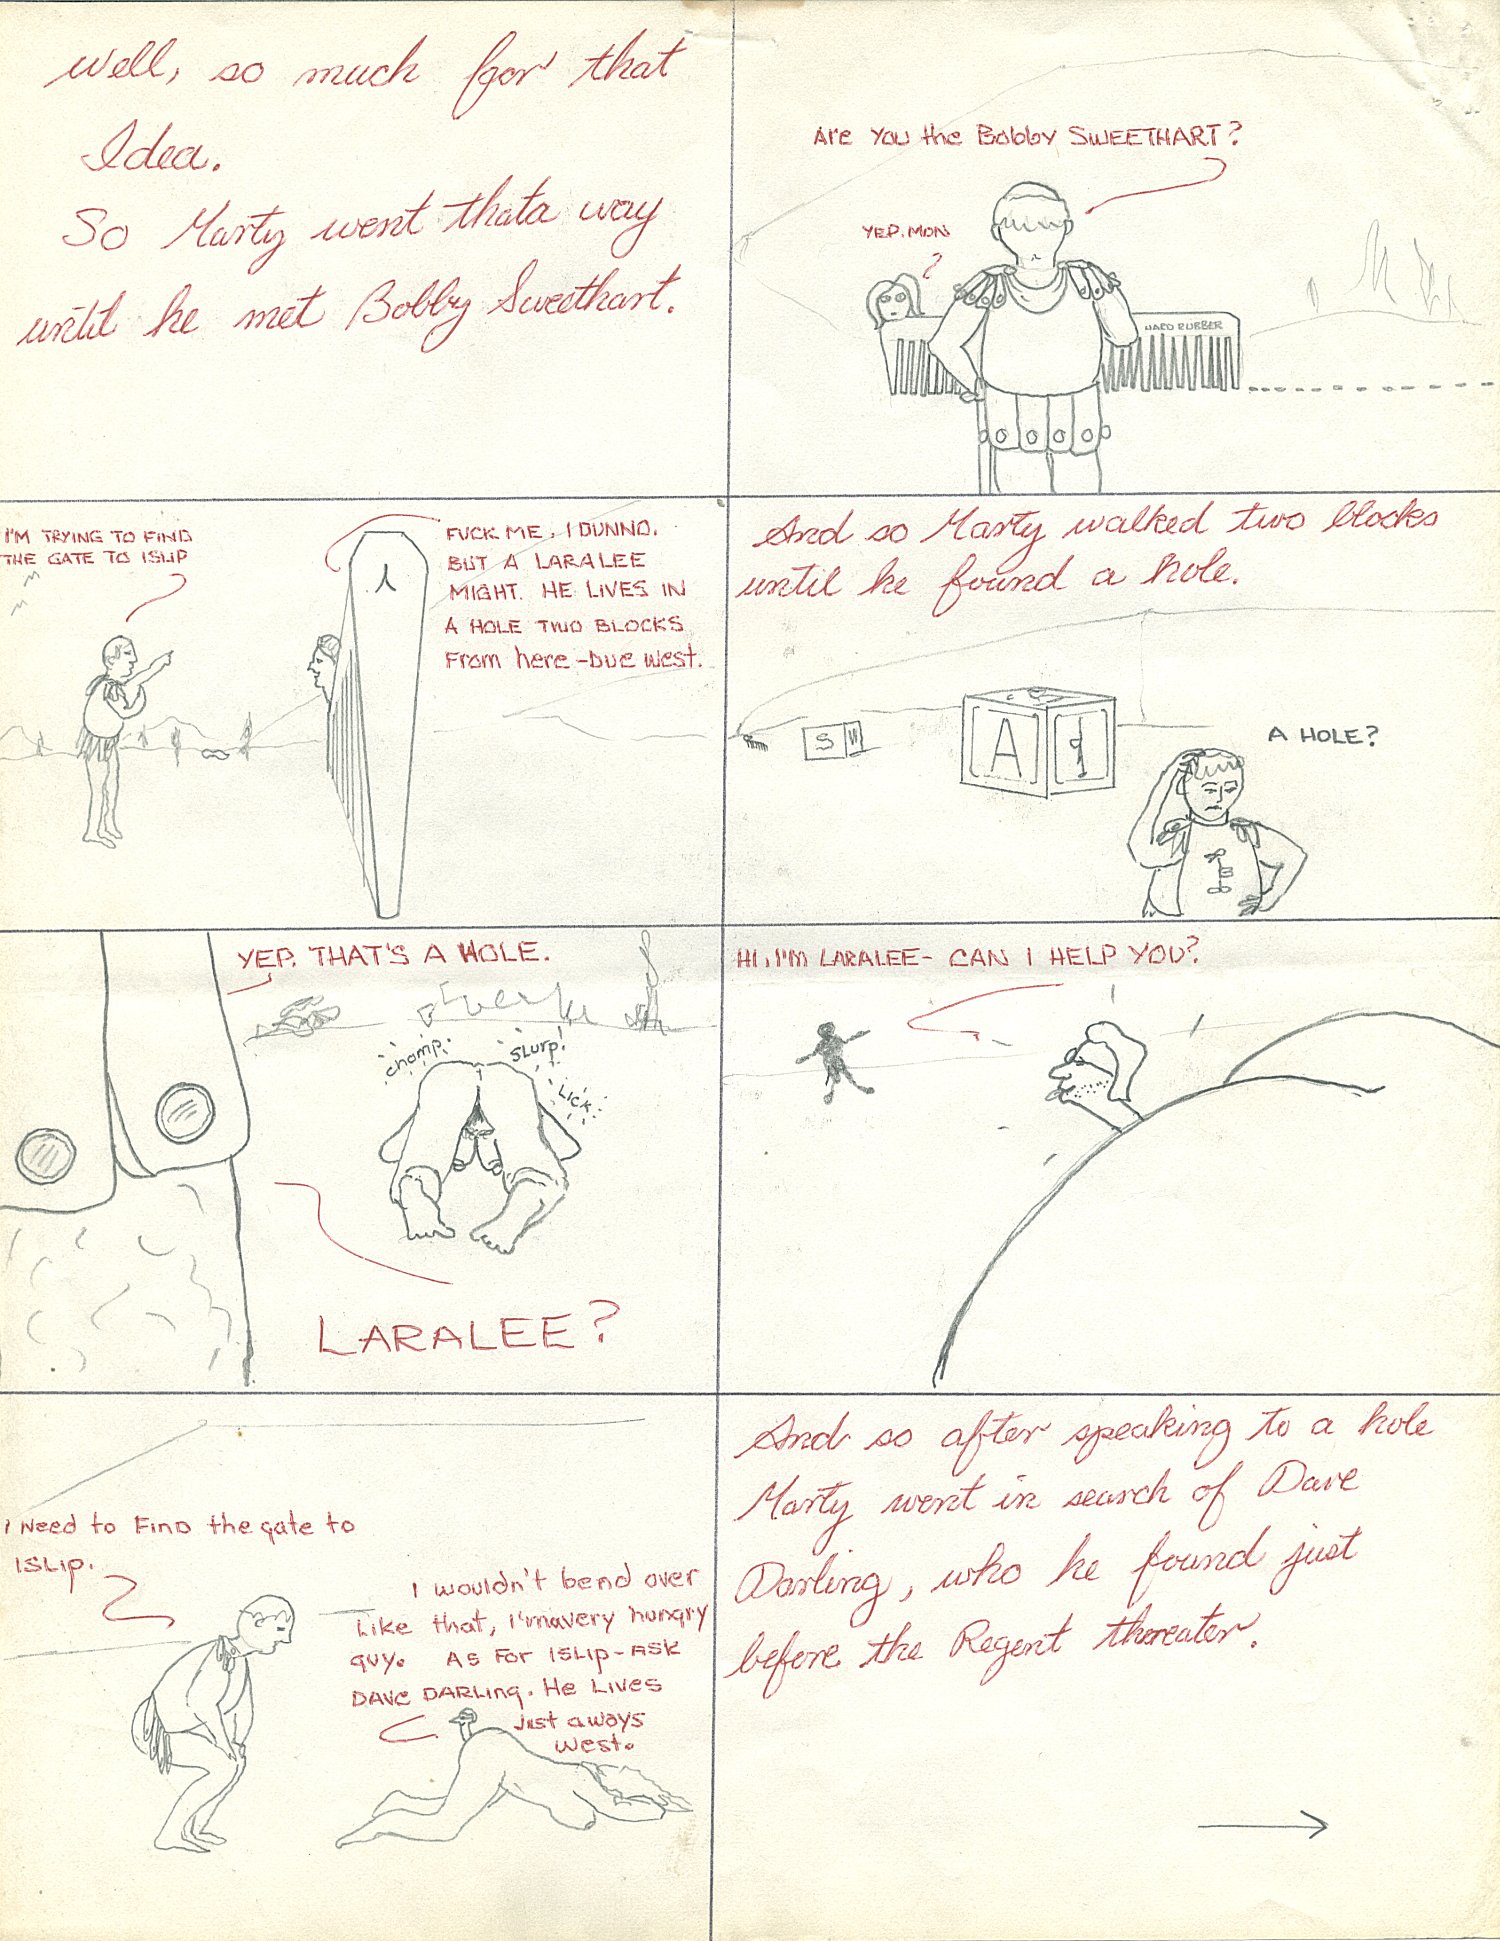 Well, so much for that
Idea.
So Marty went thata way
until he met Bobby Sweethart.
Are You the Bobby SWEETHART?
YEP. MON
HARD RUBBER
I'M TRYING TO FIND
THE GATE TO ISLIP
FUCK ME, I DUNNO.
BUT A LARALEE
MIGHT. HE LIVES IN
A HOLE TWO BLOCKS
From here - Due West.
And so Marty walked two blocks
until he found a hole.
S W
A 1
A HOLE?
YEP. THAT'S A HOLE.
chomp.
SLURP!
LICK
LARALEE?
HI, I'M LARALEE- CAN I HELP YOU?
I Need to Find the gate to
ISLIP.
I wouldn't bend over
Like that, I'm a very hungry
guy. AS FOR ISLIP-ASK
DAVE DARLING. He Lives
Just aways
West.
And so after speaking to a hole
Marty went in search of Dave
Darling, who he found just
before the Regent thereater.